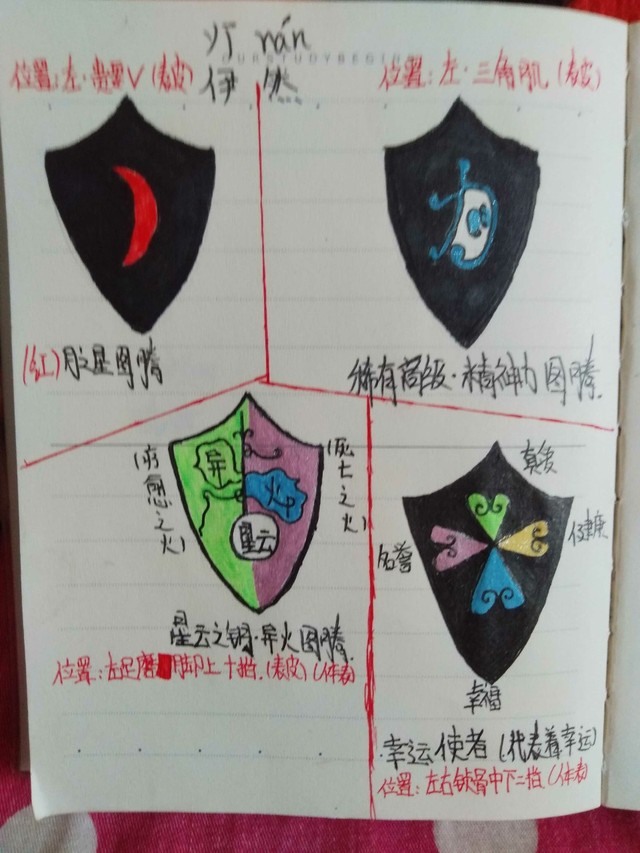 rán
伊 然
位置:左·贵要V(表皮)
位置:左·三角肌(表皮)
(红) 星图腾
稀有高级·精神力图腾.
(治愈之火)
异
火
星云
(死亡之火)
星云之钥·异火图腾.
位置:左足 脚上十档.(表皮)(体表)
真爱
名誉
健康
幸福
幸运使者(代表着幸运)
位置:左右锁骨中下二档(体表)